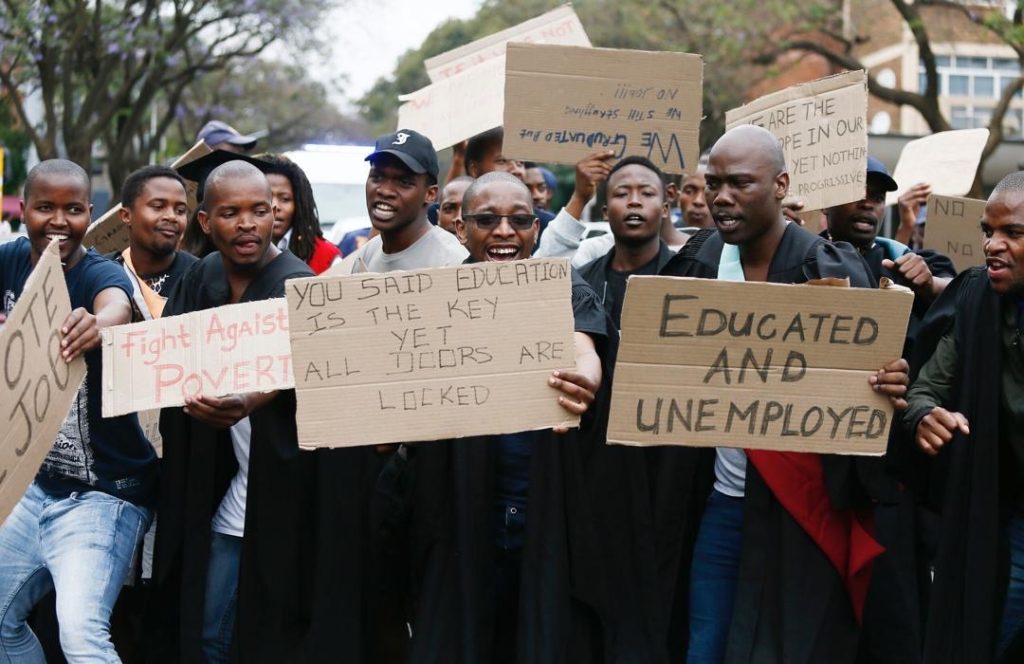 NOT
WE GRADUATED BUT
WE STILL
NO JOB!!!!
E ARE THE
OPE IN OUR
YET NOTHIN
PROGRESSIVE
NO
NO
OTE
JOB
Fight Against
POVERT
YOU SAID EDUCATION
IS THE KEY
YET
ALL DOORS ARE
LOCKED
EDUCATED
AND
UNEMPLOYED